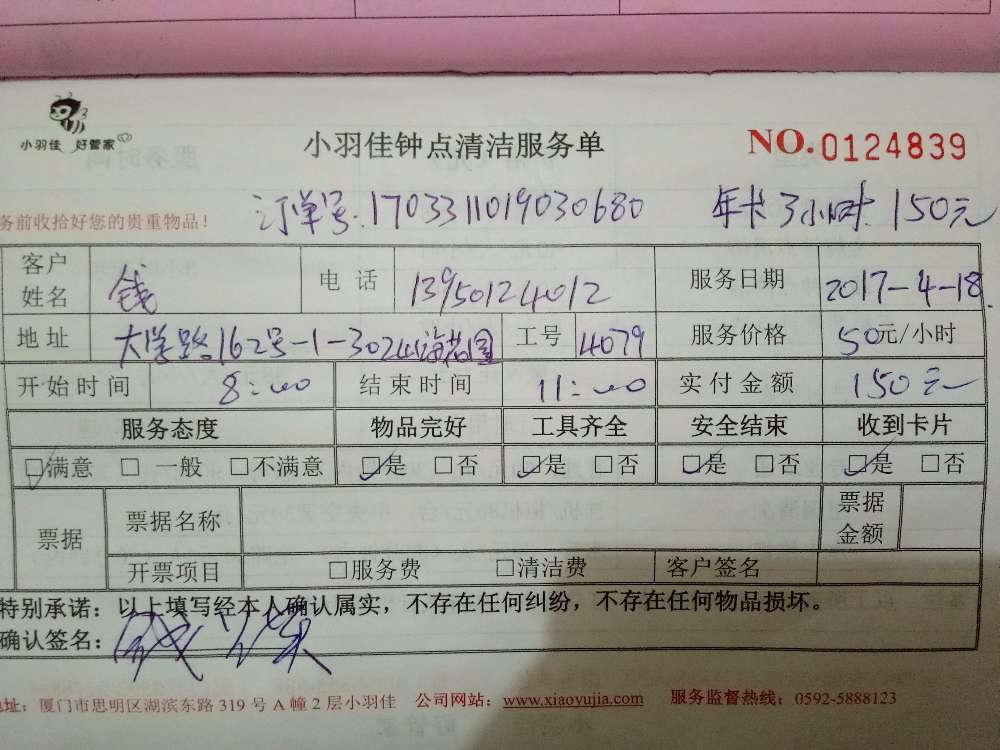 小羽佳 好管家
小羽佳钟点清洁服务单
NO.0124839
务前收拾好您的贵重物品！
订单号.170331101903068​0 年卡3小时.150元
客户姓名 钱 电话 13950124012 服务日期 2017-4-18.
地址 大学路162号-1-302 工号 4079 服务价格 50元/小时
开始时间 8:00 结束时间 11:00 实付金额 150元
服务态度 物品完好 工具齐全 安全结束 收到卡片
☑满意 □一般 □不满意 ☑是 □否 ☑是 □否 ☑是 □否 ☑是 □否
票据 票据名称 票据金额
开票项目 □服务费 □清洁费 客户签名
特别承诺：以上填写经本人确认属实，不存在任何纠纷，不存在任何物品损坏。
确认签名：钱
地址：厦门市思明区湖滨东路319号A幢2层小羽佳 公司网站：www.xiaoyujia.com 服务监督热线：0592-5888123